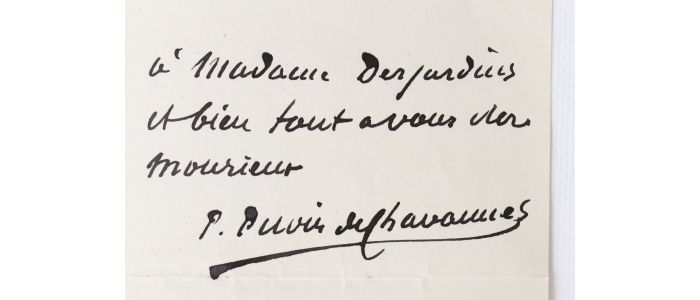 à Madame Desjardins
et bien tout a vous cher
monsieur
P. Puvis de Chavannes